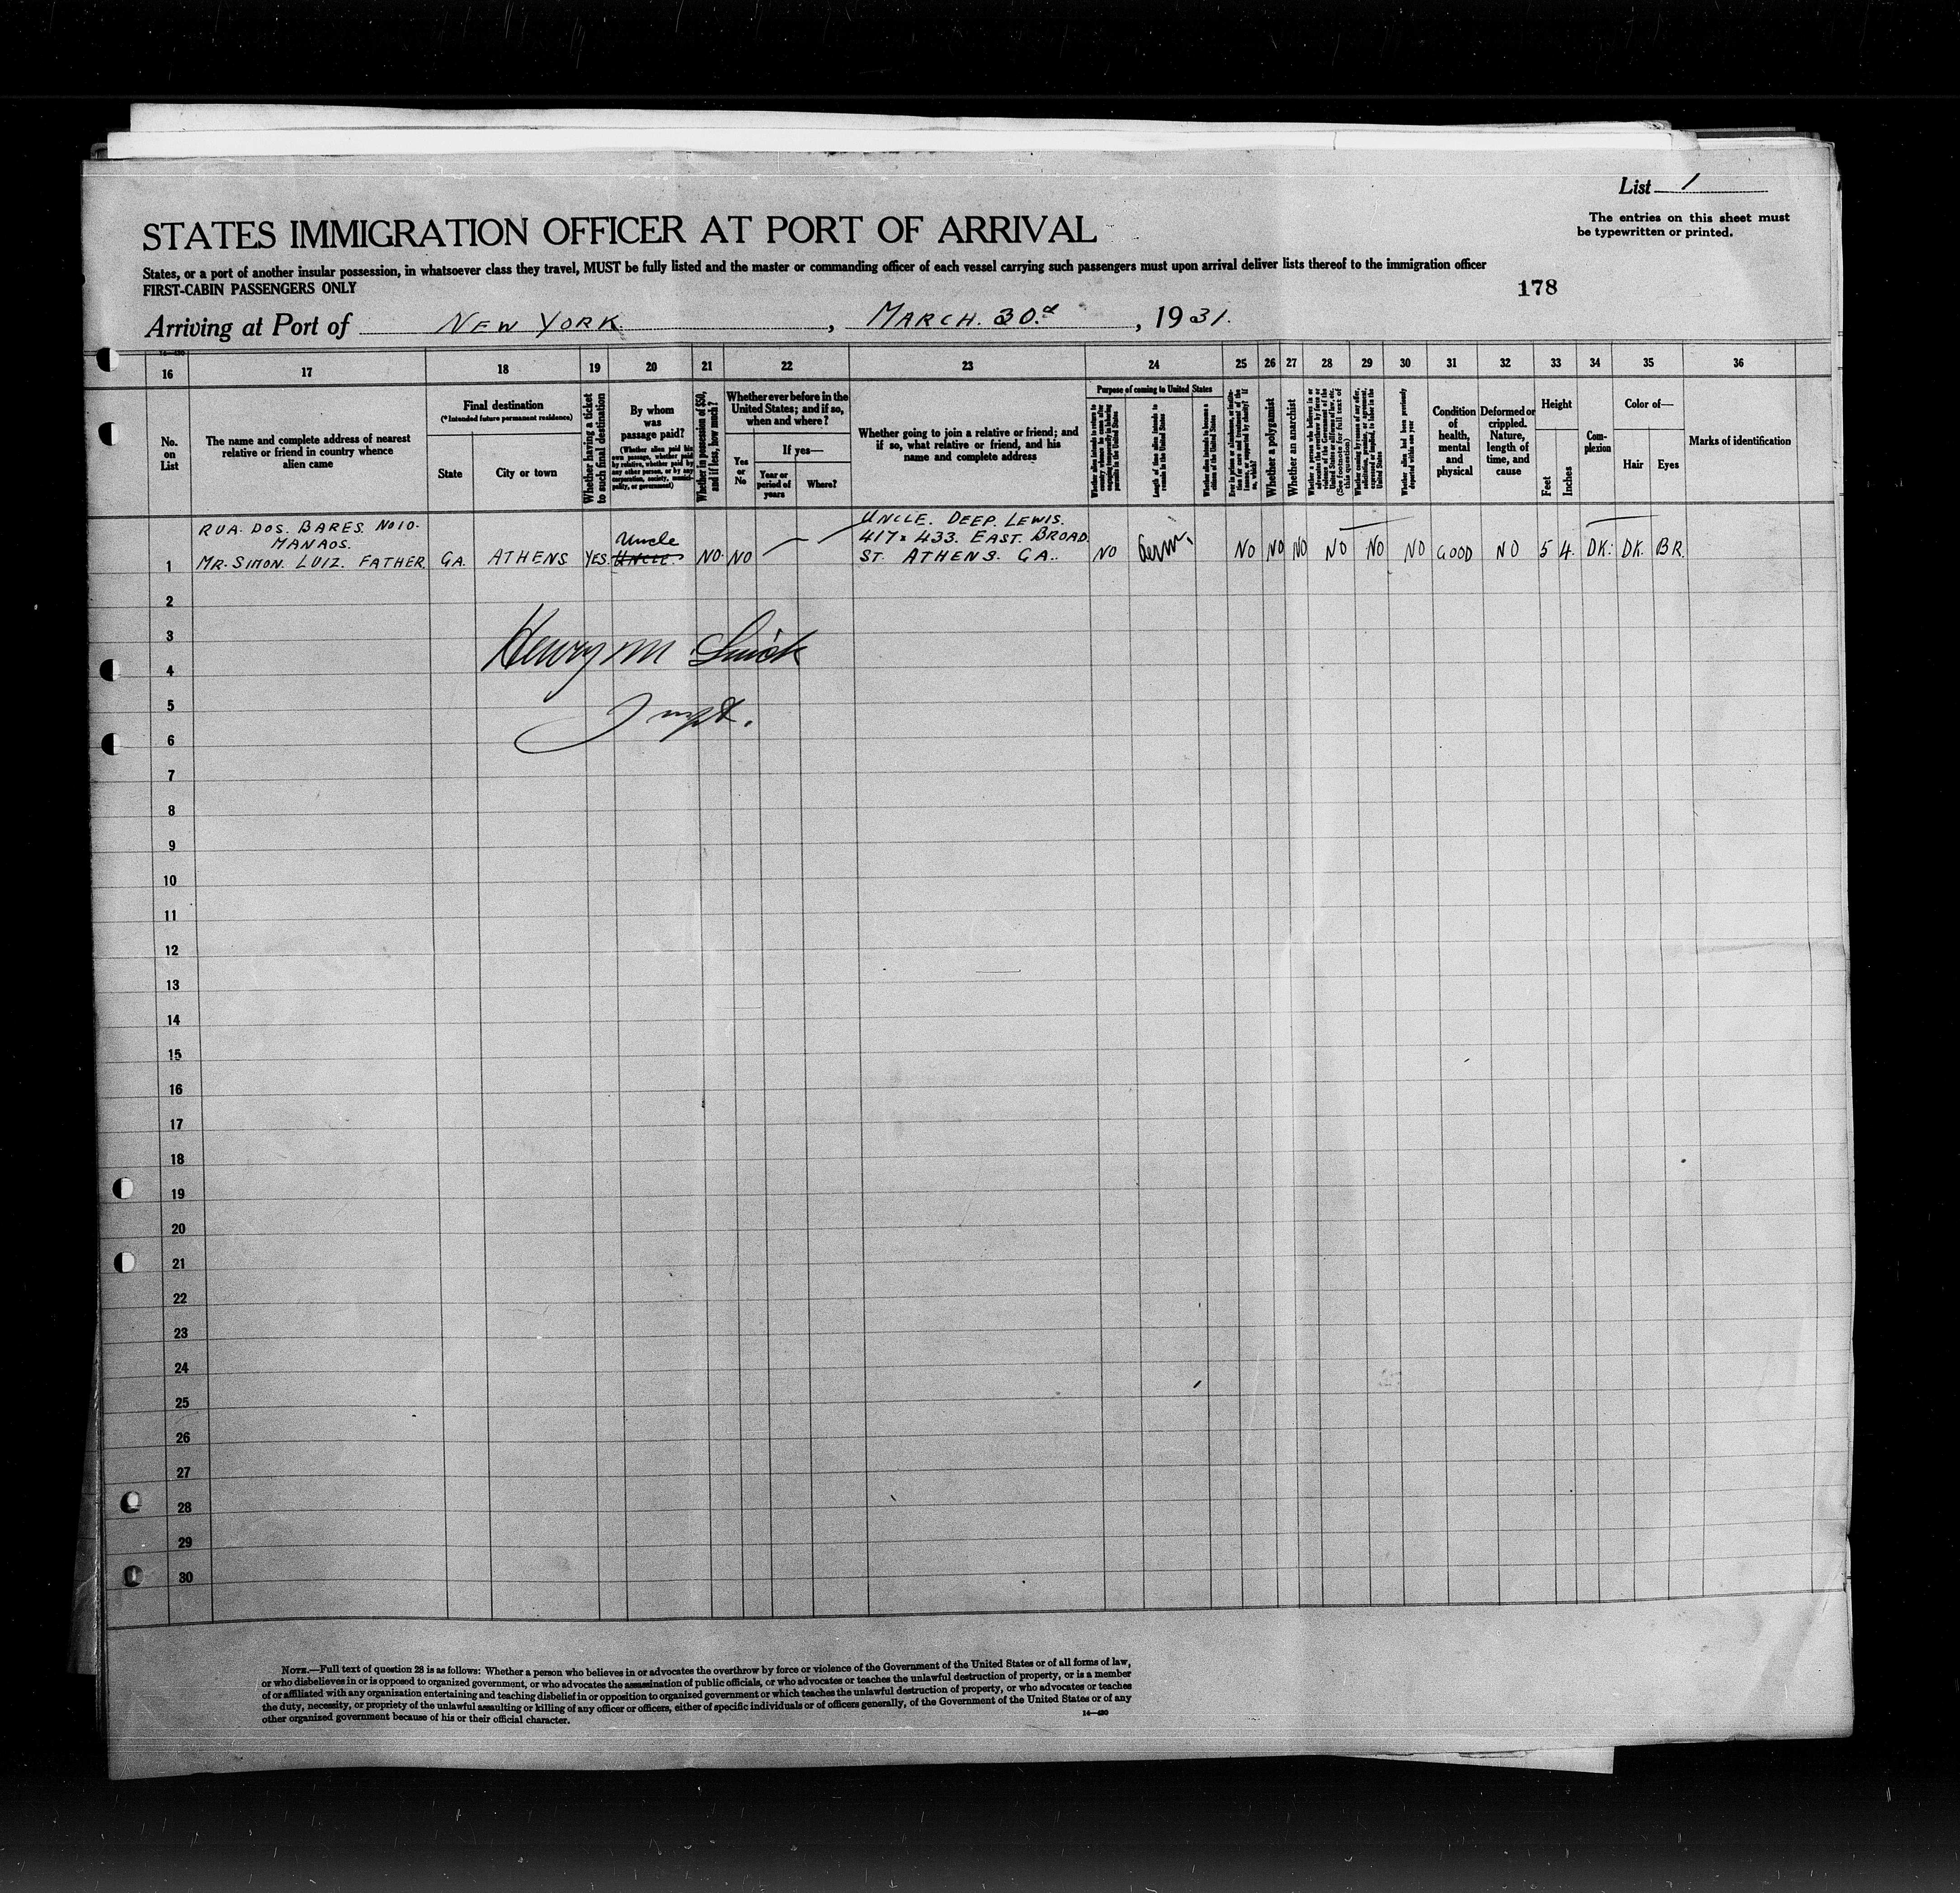 List 1
The entries on this sheet must
be typewritten or printed.
STATES IMMIGRATION OFFICER AT PORT OF ARRIVAL
States, or a port of another insular possession, in whatsoever class they travel, MUST be fully listed and the master or commanding officer of each vessel carrying such passengers must upon arrival deliver lists thereof to the immigration officer
FIRST-CABIN PASSENGERS ONLY
178
Arriving at Port of NEW YORK , MARCH. 30.d , 1931.
16 17 18 19 20 21 22 23 24 25 26 27 28 29 30 31 32 33 34 35 36
No.
on
List
The name and complete address of nearest
relative or friend in country whence
alien came
Final destination
(*Intended future permanent residence)
State
City or town
Whether having a ticket
to such final destination
By whom
was
passage paid?
(Whether alien paid his
own passage, whether paid
by relative, whether paid by
any other person, or by any
corporation, society, munici-
pality, or government)
Whether in possession of $50,
and if less, how much?
Whether ever before in the
United States; and if so,
when and where?
Yes
or
No
If yes—
Year or
period of
years
Where?
Whether going to join a relative or friend; and
if so, what relative or friend, and his
name and complete address
Purpose of coming to United States
Length of time alien intends to
remain in the United States
Whether alien intends to become a
citizen of the United States
Whether a polygamist
Whether an anarchist
Whether alien had been previously
deported within one year
Condition
of
health,
mental
and
physical
Deformed or
crippled.
Nature,
length of
time, and
cause
Height
Feet
Inches
Com-
plexion
Color of—
Hair
Eyes
Marks of identification
RUA. DOS. BARES. No 10.
MANAOS.
1 MR. SIMON. LUIZ. FATHER. GA. ATHENS YES. Uncle UNCLE. NO. NO
UNCLE. DEEP. LEWIS.
417 x 433. EAST. BROAD.
ST. ATHENS. GA.. NO NO NO NO NO NO NO GOOD NO 5 4. DK. DK. BR.
2
3
Henry M
4
5
Inspt.
6
7
8
9
10
11
12
13
14
15
16
17
18
19
20
21
22
23
24
25
26
27
28
29
30
NOTE.—Full text of question 28 is as follows: Whether a person who believes in or advocates the overthrow by force or violence of the Government of the United States or of all forms of law,
or who disbelieves in or is opposed to organized government, or who advocates the assassination of public officials, or who advocates or teaches the unlawful destruction of property, or is a member
of or affiliated with any organization entertaining and teaching disbelief in or opposition to organized government or which teaches the unlawful destruction of property, or who advocates or teaches
the duty, necessity, or propriety of the unlawful assaulting or killing of any officer or officers, either of specific individuals or of officers generally, of the Government of the United States or of any
other organized government because of his or their official character.
14—480